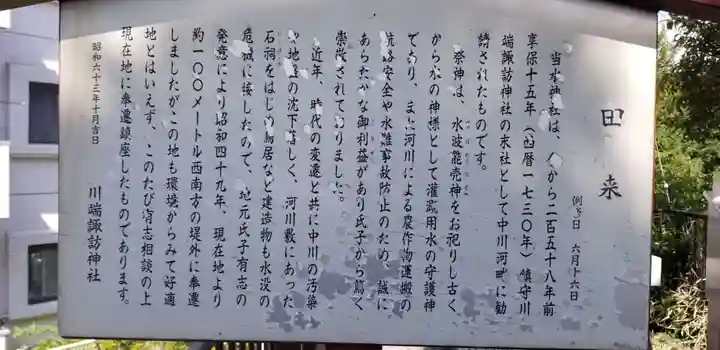 由来
例祭日 六月十六日
当水神社は、今から二百五十八年前
享保十五年(西暦一七三〇年)鎮守川
端諏訪神社の末社として中川河畔に勧
請されたものです。
祭神は、水波能売神をお祀りし古く
から水の神様として灌漑用水の守護神
であり、また河川による農作物運搬の
航路安全や水難事故防止のため、誠に
あらたかな御利益があり氏子から篤く
崇敬されておりました。
近年、時代の変遷と共に中川の汚染
や地盤の沈下著しく、河川敷にあった
石祠をはじめ鳥居など建造物も水没の
危機に接したので、地元氏子有志の
発意により昭和四十九年、現在地より
約一〇〇メートル西南方の堤外に奉遷
しましたがこの地も環境からみて好適
地とはいえず、このたび有志相談の上
現在地に奉遷鎮座したものであります。
昭和六十三年十月吉日
川端諏訪神社